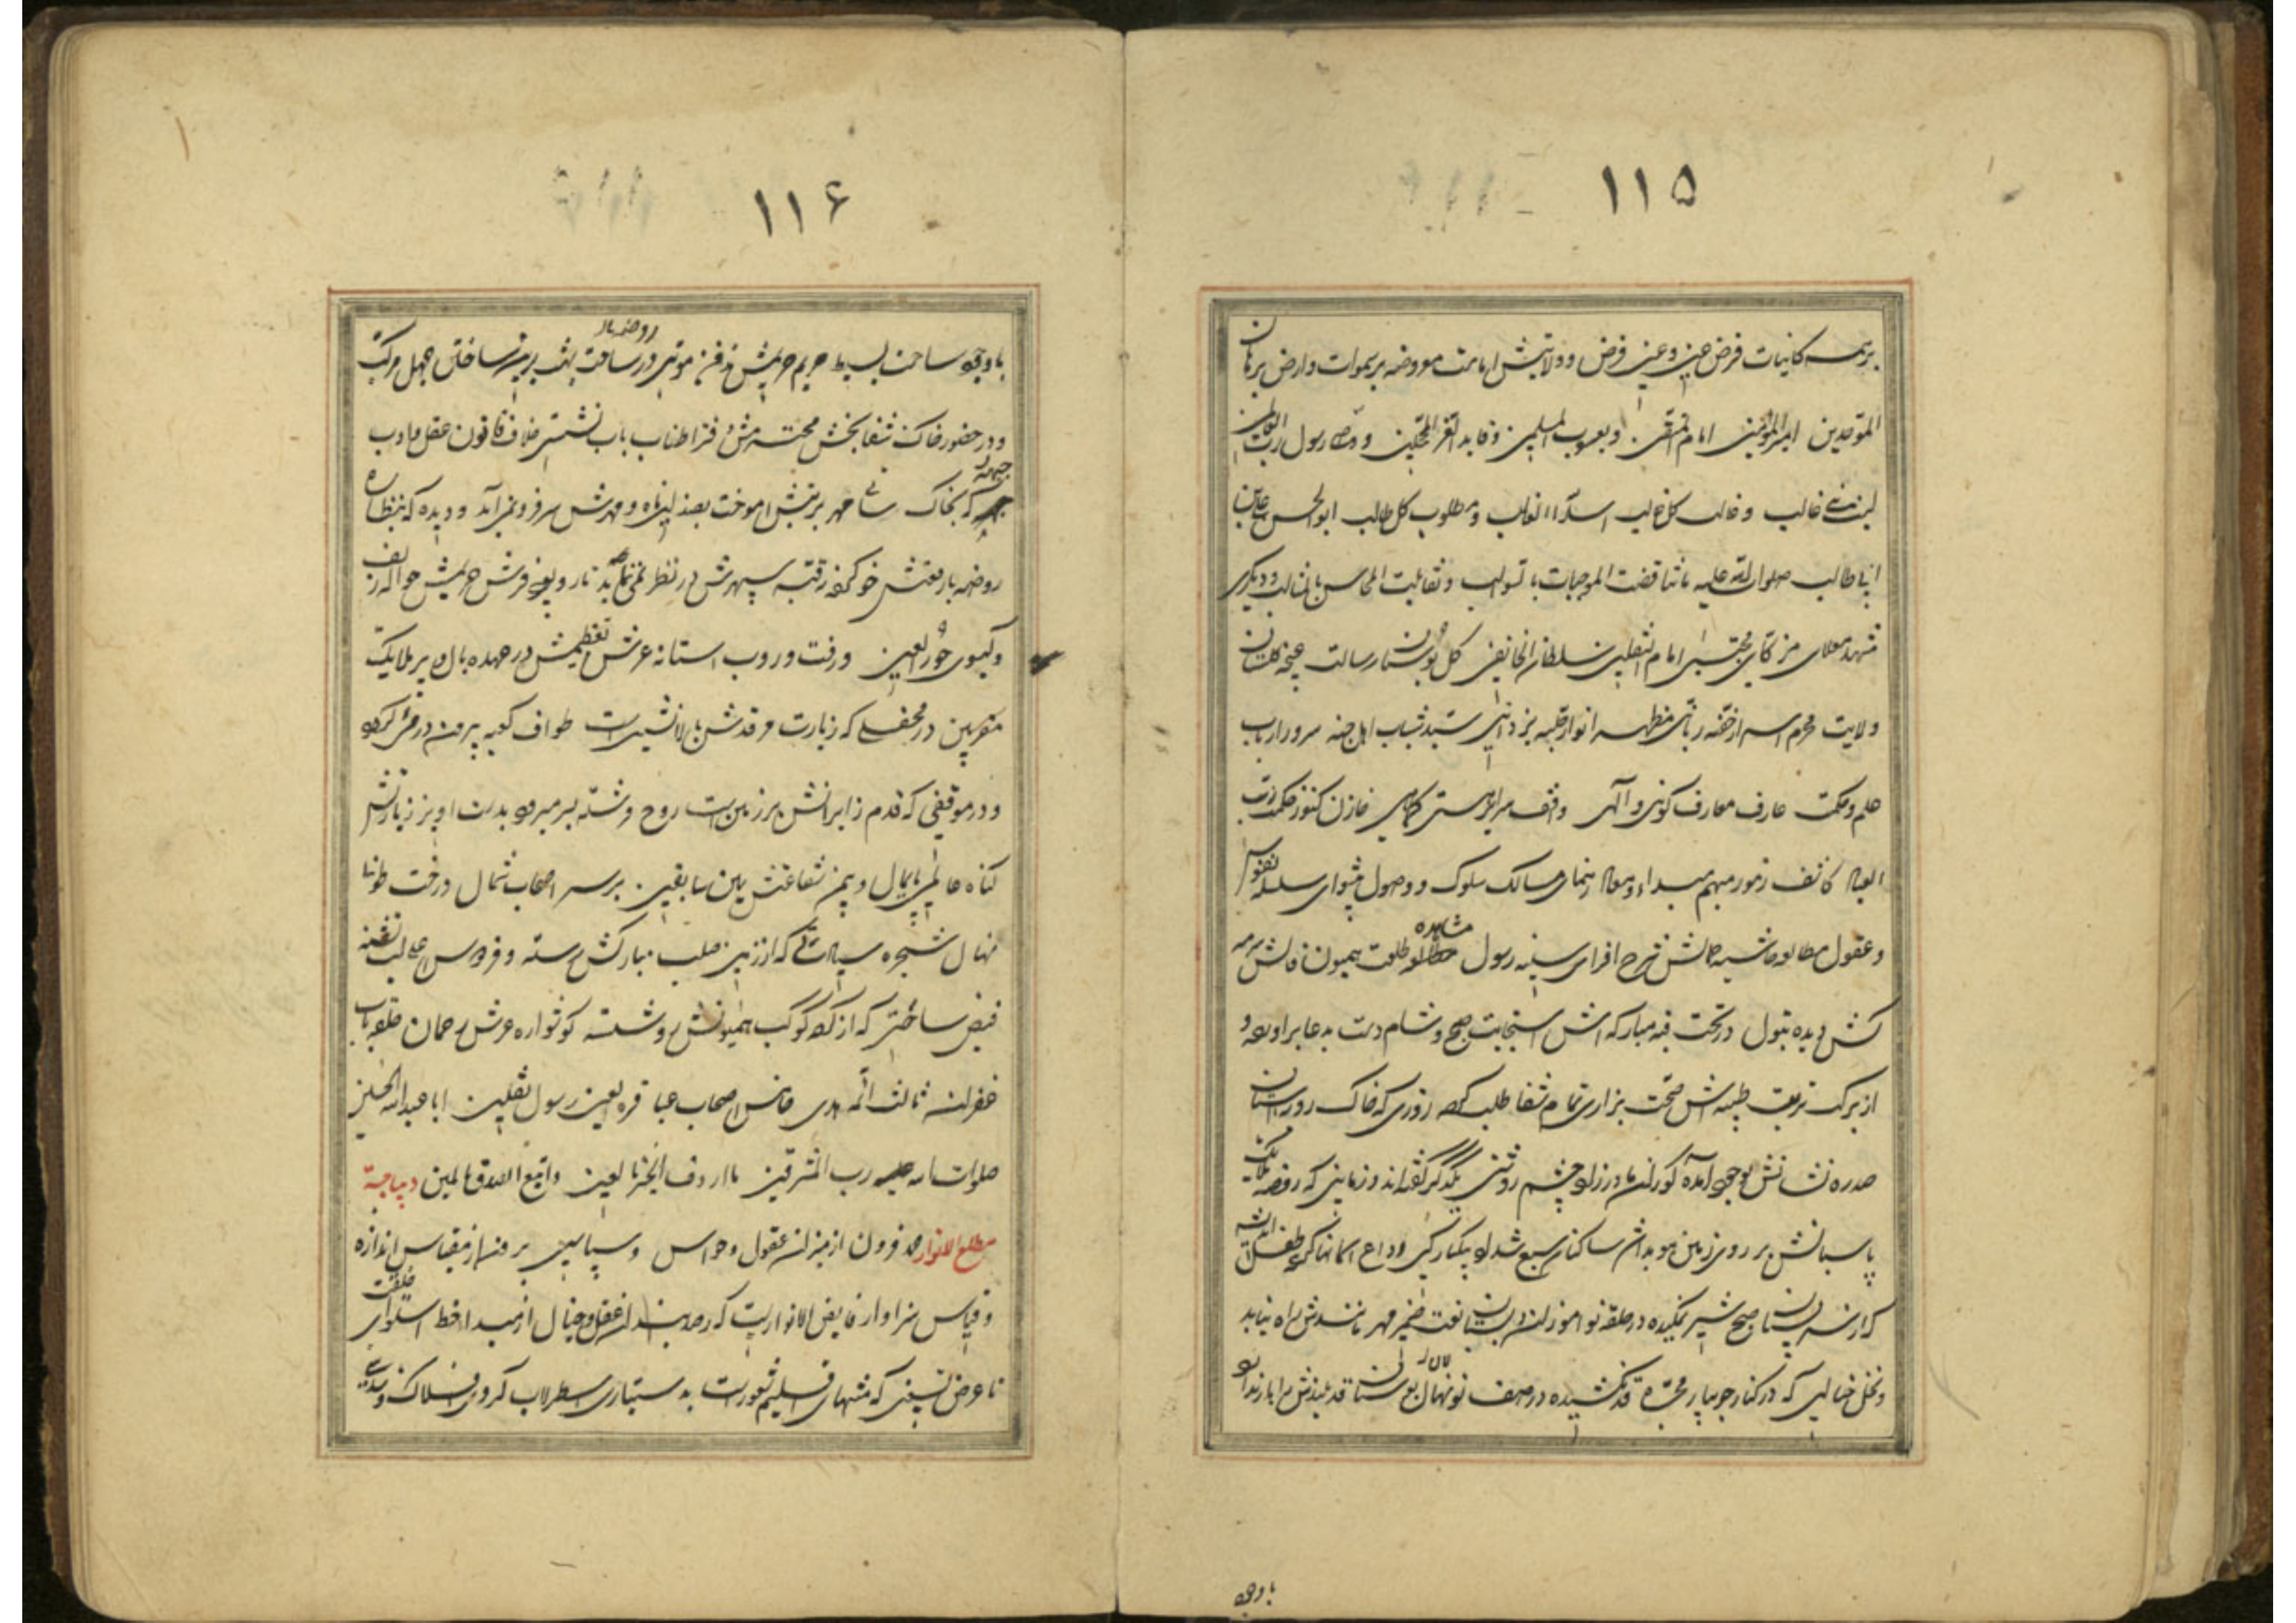 ۱۱۵
بر همه کاینات فرض عین و عین فرض و ولایتش امانت معروضه بر سموات و ارض برهان
الموحدین امیر المؤمنین امام المتقین و یعسوب المسلمین و قاید الغر المحجلین و وصی رسول رب العالمین
لیث بنی غالب و غالب کل غالب اسد الله الغالب و مطلوب کل طالب ابو الحسن علی بن
ابی طالب صلوات الله علیه ما تناقضت الموجبات بالسوالب و تقابلت المحاسن بالمثالب و دیگری
مشهد معلای مزکای مجتبی امام الثقلین سلطان الخافقین گل بوستان رسالت غنچه گلستان
ولایت محرم اسرار خفیه ربانی مظهر انوار جلیه یزدانی سید شباب اهل جنه سرور ارباب
علم و حکمت عارف معارف کونی و الهی واقف مزایای هستی کماهی خازن کنوز حکمت رب
العباد کاشف رموز مبهم مبداء و معاد رهنمای مسالک سلوک و وصول پیشوای سلسله نفوس
و عقول مطالعه حاشیه جمالش شرح افزای سینه رسول مشاهده طلعت همیون فالش سرمه
کش دیده بتول در تحت قبه مبارکه اش استجابت صبح و شام دست به دعا برآورده و
از برکت تربت طیبه اش صحت بزاری تمام شفا طلب کرده روزی که خاک روب آستان
سدره نشانش بوجود آمده کوران مادرزاد چشم روشنی یکدیگر گفته اند و زمانی که روضه ملایک
پاسبانش بر روی زمین هویدا شد ساکنان سبع شداد یکبارگی وداع آسمانها کرده طفل اندیشه
که از پستان صبح شیر نمکیده در حلقه نو آموزان دبستان نعت ضمیر مهر مانندش راه نیابد
و نخل خیالی که در کنار جویبار مجره قد نکشیده در صف نو نهالان بوستان قد بلندش را بار نداد
با وجود
۱۱۶
با وجود ساحت بسیط حریم حریمش دفتر موتی در ساحت بهشت برین ساختن جهل مرکب
روضه
و در حضور خاک شفا بخش محنت شرفزا طناب باب نشستن خلاف قانون عقل و ادب
جبهه که بخاک سائی مهر تربتش آموخت بصندلین ماه و مهرش سر فرو نمی آید و دیده که بنظاره
روضه با رفعتش خو کرده رتبه سپهرش در نظر نمی نماید تار و پود فرش حریمش حواله زلف
و گیسوی حور العین و رفت و روب آستانه عرش تعظیمش در عهده بال و پر ملایک
مقربین در محفلی که زیارت مرقدش بالا نشین است طواف کعبه پیرهن در قبر کرده
و در موقفی که قدم زایرانش بر زمین است روح فرشته بسر میرود بدست آویز زیارتش
گناه عالمی پایمال و یمن شفاعتش یمین سابقین بر سر اصحاب شمال درخت طوبی
نهال شجره سیادتی که از زمین صلب مبارکش رسته و فردوس اعلی لب تشنه
فیض ساحتی که از گرد کوکب همیونش رو شسته گوشواره عرش رحمان حلقه باب
غفران ثالث ائمه هدی خامس اصحاب عبا قره العین رسول الثقلین ابا عبد الله الحسین
صلوات الله علیه رب المشرقین ما اردف الخبر بالعین و اتبع الصدق بالمین دیباجه
مطلع الانوار حمد فزون از میزان عقول و حواس و سپاس بیرون از مقیاس اندازه
و قیاس سزاوار فایض الانواریست که رصدبندان عقل و خیال از مبداء خط استوای خلقت
تا عرض تسعین که منتهای اقلیم شعور است به دستیاری اسطرلاب گردون افلاک و